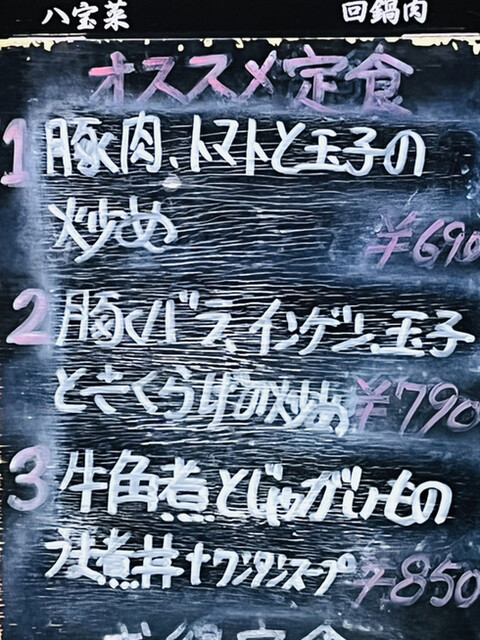 八宝菜 回鍋肉
オススメ定食
1 豚肉、トマトと玉子の
炒め ¥690
2 豚バラ、インゲン、玉子
ときくらげの炒め ¥790
3 牛角煮とじゃがいもの
煮丼+ワンタンスープ ¥850
定食